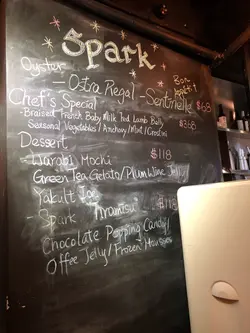 Spark
Oyster
- Ostra Regal - Sentinelle $68
Bon
Chef's Special
- Braised French Baby Milk Fed Lamb Belly $368
Seasonal Vegetables / Anchovy / Mint / Crostini
Dessert
- Warabi Mochi $118
Green Tea Gelato / Plum Wine Jelly
Yakult Ice
- Spark Tiramisu $118
Chocolate Popping Candy /
Offee Jelly / Frozen